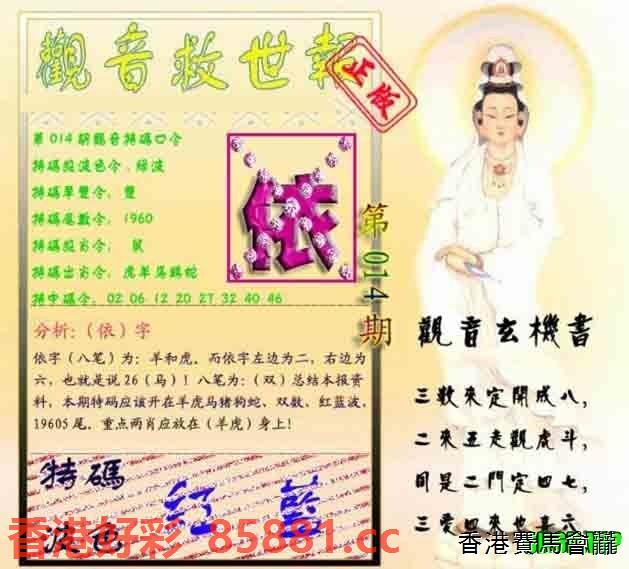 觀音救世報
正版
第014期觀音特碼口令
特碼投波色令：綠波
特碼單雙令：雙
特碼尾數令：1960
特碼投肖令：鼠
特碼出肖令：虎羊馬豬蛇
特中碼令：02 06 12 20 27 32 40 46
依
第014期
分析：（依）字
依字（八笔）为：羊和虎，而依字左边为二，右边为
六，也就是说26（马）！八笔为：（双）总结本报资
料，本期特码应该开在羊虎马猪狗蛇、双数、红蓝波，
19605尾，重点两肖应放在（羊虎）身上！
觀音玄機書
三数來定開成八，
二來五走觀虎斗，
同是二門定四七，
三愛四來也喜六
特碼
波色
红 蓝
香港好彩 85881.cc
香港賽馬會